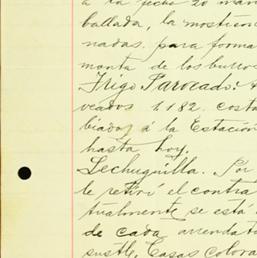 á la fecha 20 man
ballada, la mostren
nadas. para forma
monta de los burros
Trigo Parocado:
vcados 1182. costa
biados á la Estación
hasta hoy.
Lechuguilla. Por
le retiré el contra
tualmente se está
de cada arrendata
sustle, Casas colora